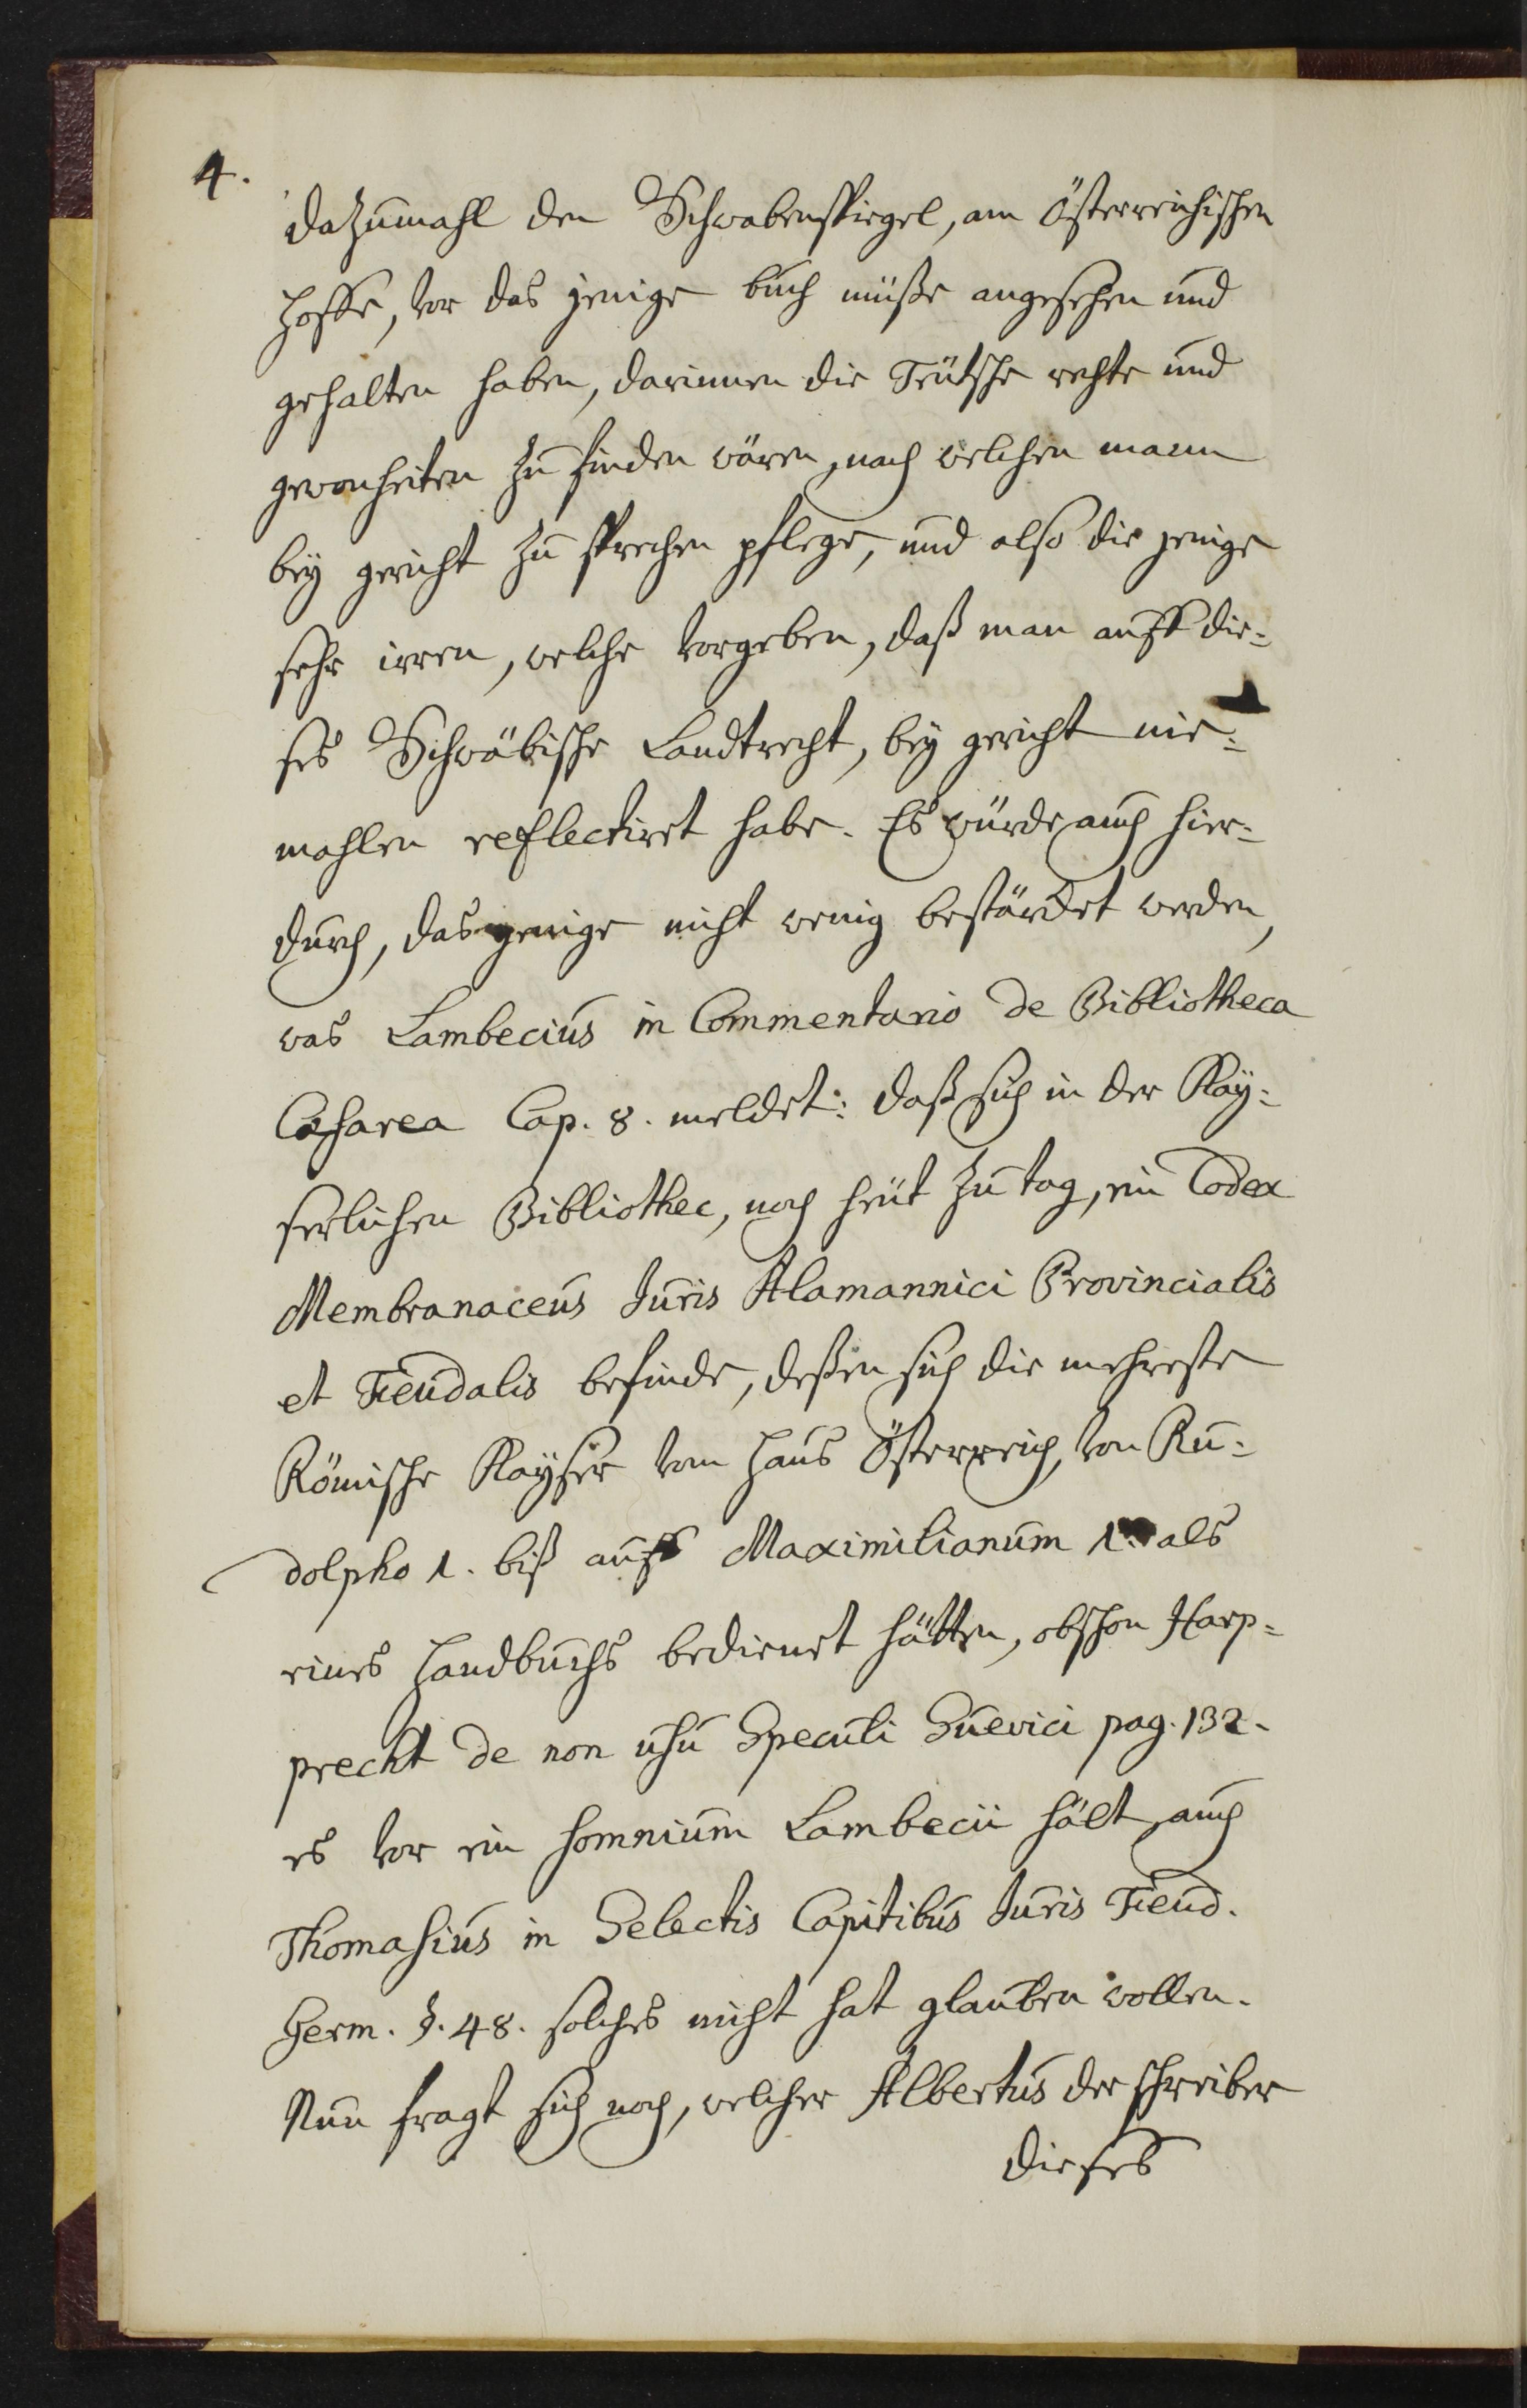 4.
dazumahl den Schwabenspiegel, am Österreichischen
hoffe, vor das jenige buch müße angesehen und
gehalten haben, darinnen die Teütsche rechte und
gewonheiten zu finden wären, nach welchen mann
bey gericht zu sprechen pflege, und also die jenige
sehr irren, welche vorgeben, daß man auff die-
ses Schwäbische Landtrecht, bey gericht nie-
mahlen reflectiret habe. Es würde auch hier-
durch, das jenige nicht wenig bestärcket werden,
was Lambecius in Commentario de Bibliotheca
Cæsarea Cap. 8. meldet: daß sich in der Kay-
serlichen Bibliothec, noch heüt zu tag, ein Codex
Membranaceus Juris Alamannici Provincialis
et Feudalis befinde, deßen sich die mehreste
Römische Kayser vom Haus Österreich, von Ru-
dolpho 1. biß auff Maximilianum 1. als
eines Handbuchs bedienet hätten, obschon Harp-
precht de non usu Speculi Suevici pag. 132.
es vor ein somnium Lambecii hält, auch
Thomasius in Selectis Capitibus Juris Feud.
Germ. §. 48. solches nicht hat glauben wollen.
Nun fragt sich noch, welcher Albertus der schreiber
dieses